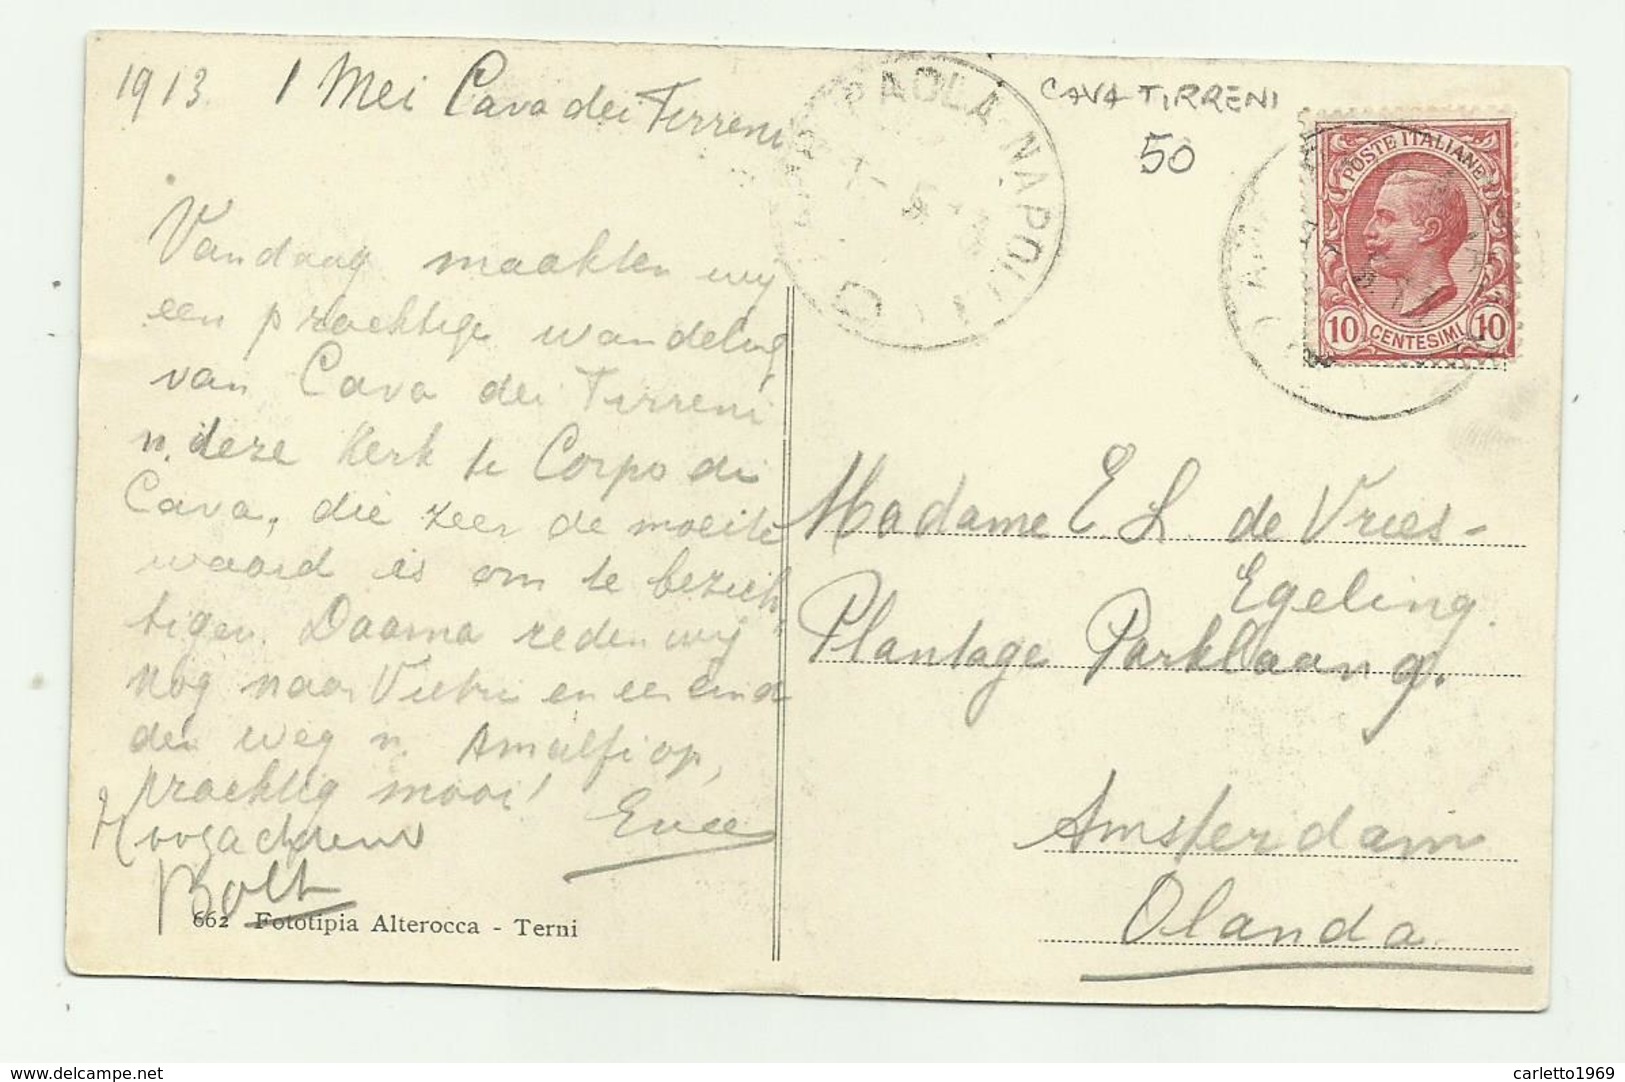 1913. 1 Mei Cava dei Tirreni
Vandaag maakten wij
een prachtige wandeling
van Cava dei Tirreni
n. deze Kerk te Corpo di
Cava, die zeer de moeite
waard is om te bezich
tigen. Daarna reden wij
nog naar Vietri en een eind
den weg n. Amalfi op,
prachtig mooi!
Hoogachtend
Bolt
662 Fototipia Alterocca - Terni
PAOLA NAPOLI
CAVA TIRRENI
50
POSTE ITALIANE
10 CENTESIMI 10
Madame E. L. de Vries-
Egeling.
Plantage Parklaan 9.
Amsterdam
Olanda
delcampe.net
carletto1969